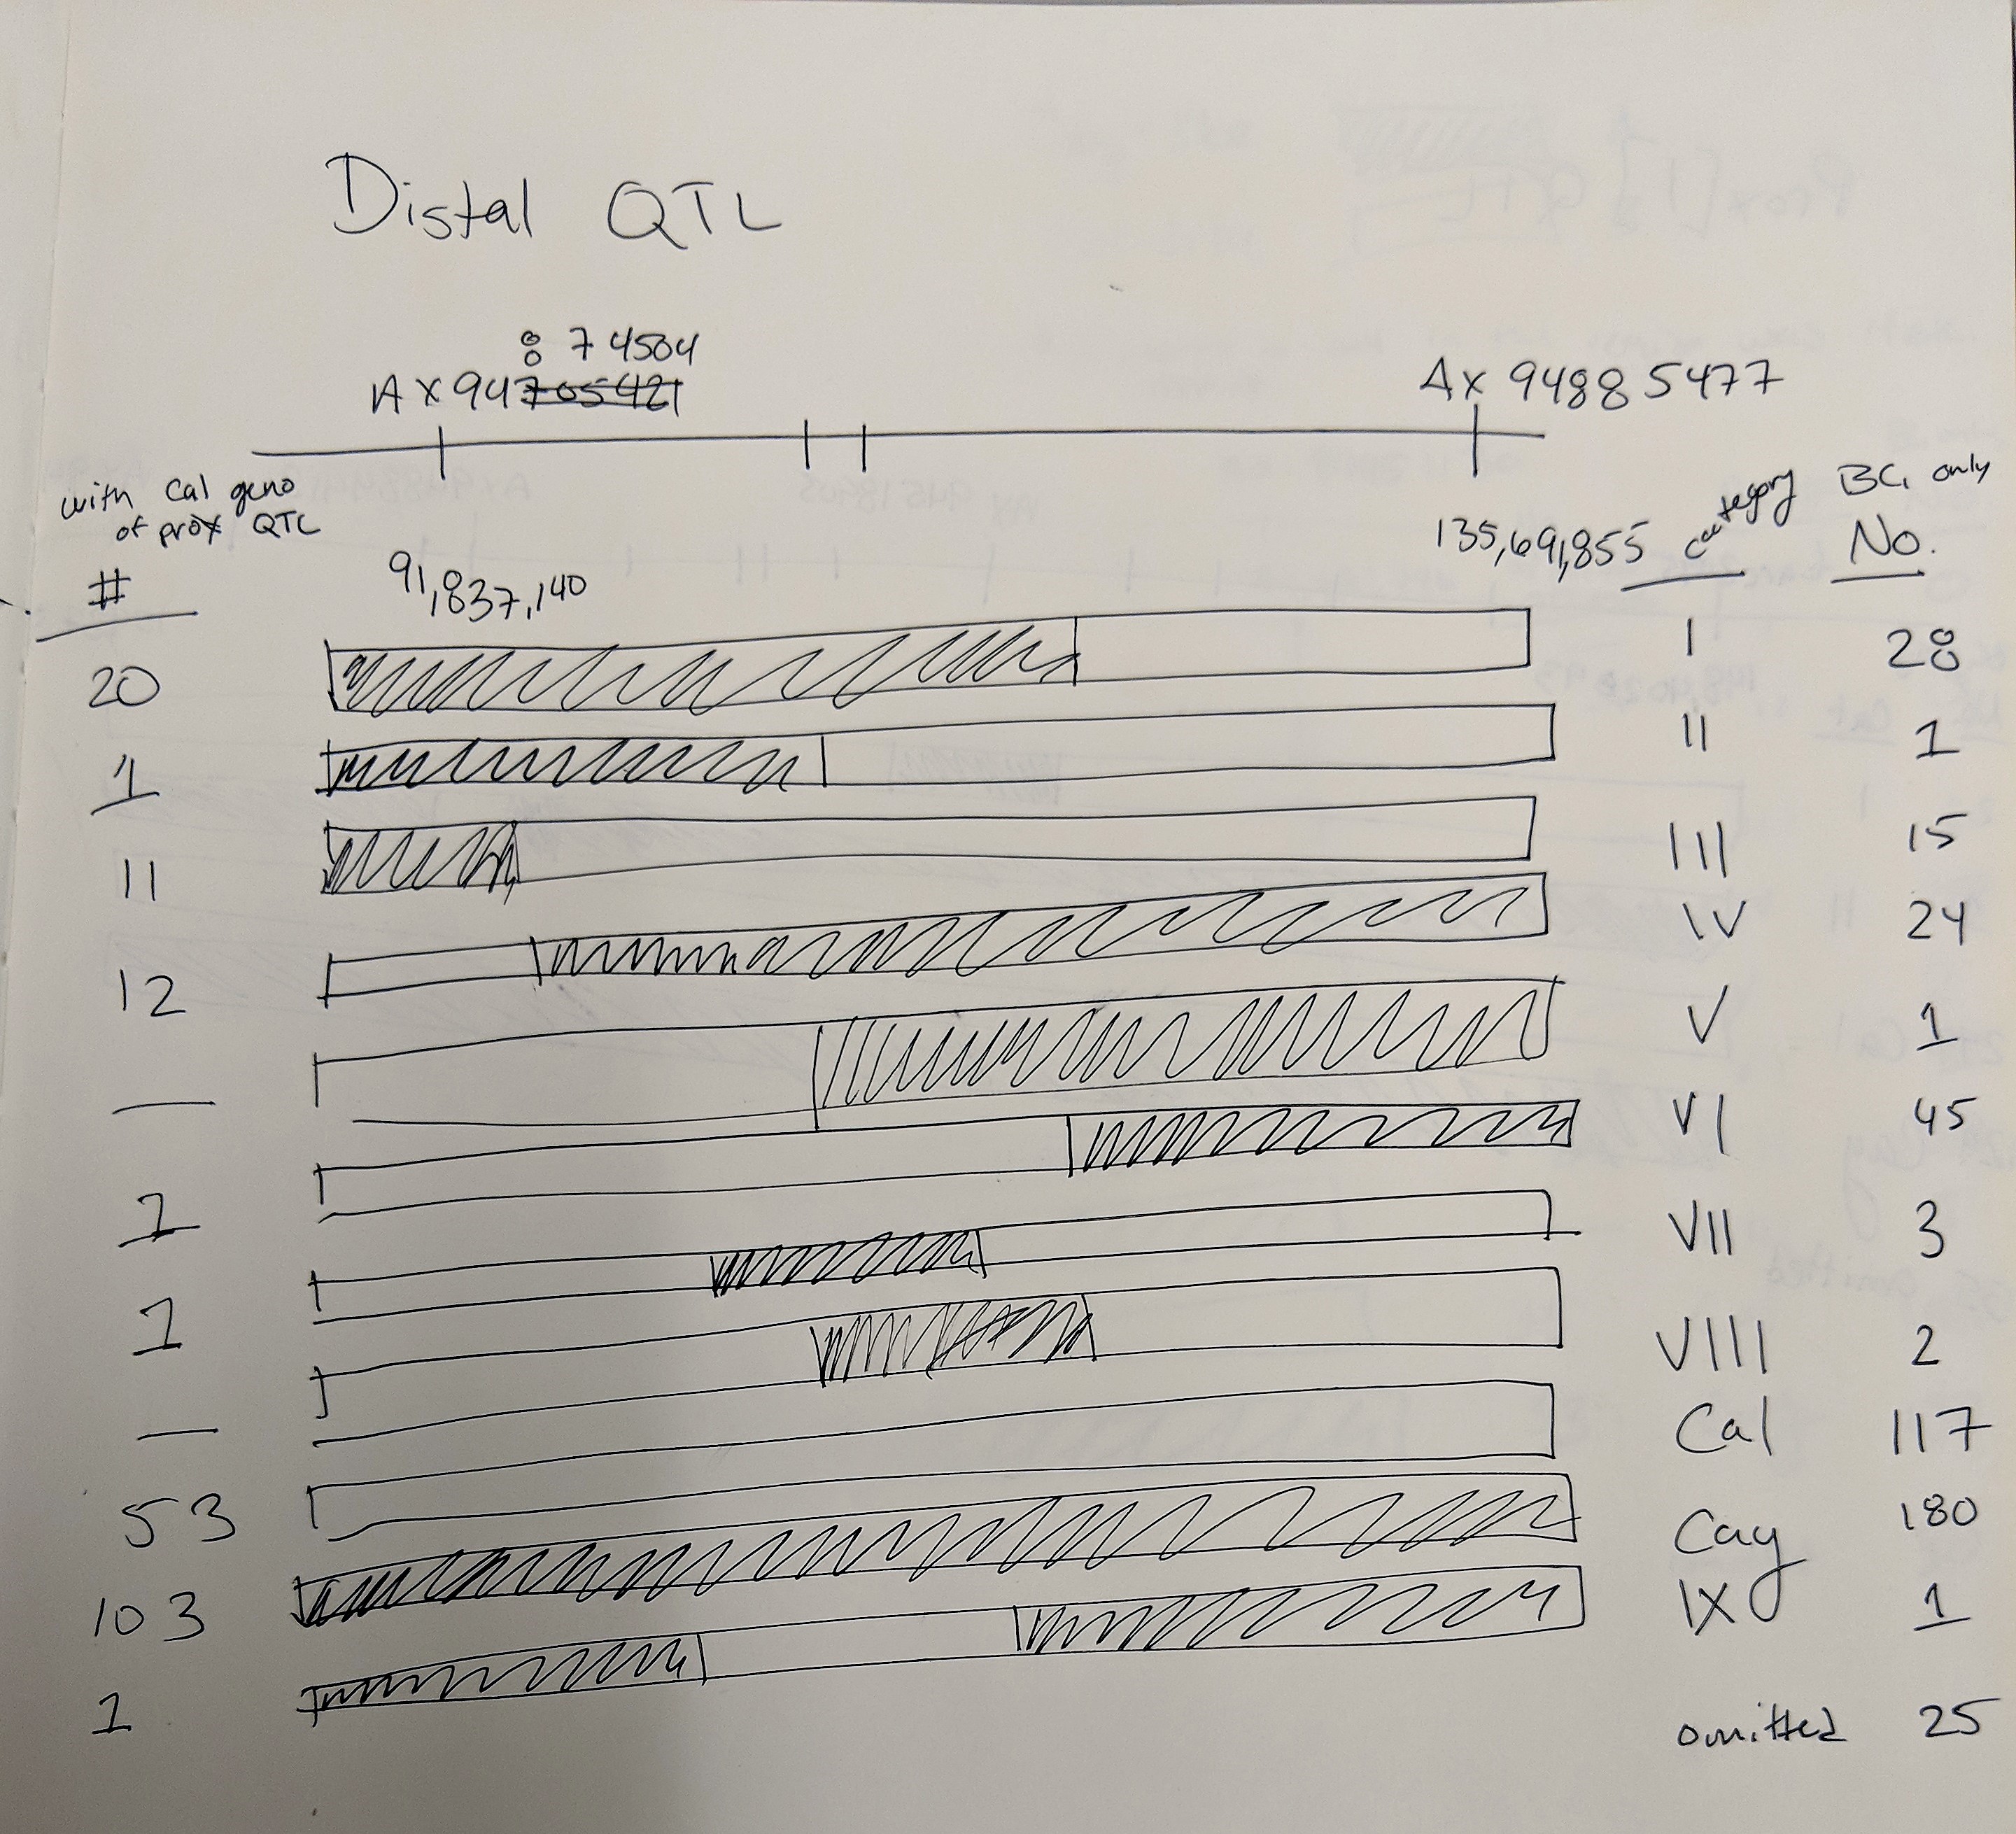 Distal QTL
: 74504
AX94705421
AX 94885477
with Cal geno
of prox QTL
#
91,837,140
135,691,855
category
BC1 only
No.
20 I 28
1 II 1
11 III 15
12 IV 24
— V 1
1 VI 45
1 VII 3
— VIII 2
53 Cal 117
103 Cay 180
1 IX 1
omitted 25